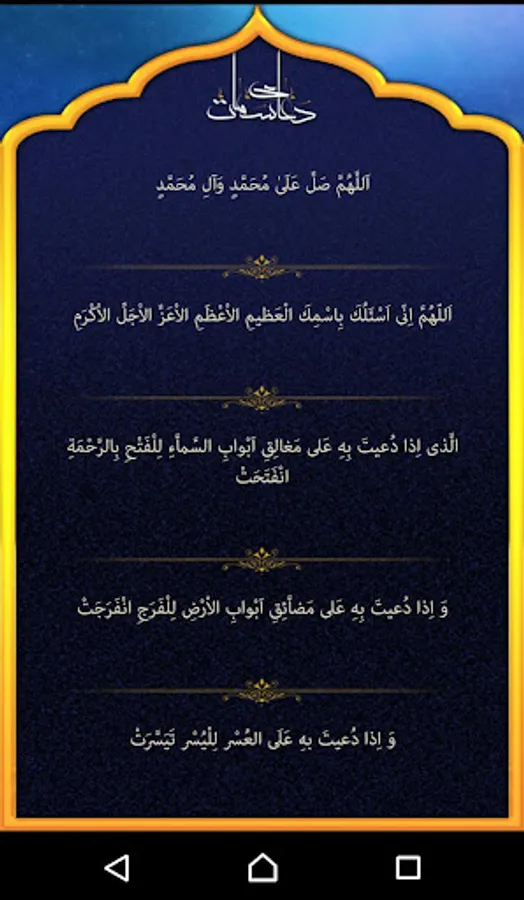 دعای سمات
اَللّهُمَّ صَلِّ عَلَىٰ مُحَمَّدٍ وَآلِ مُحَمَّدٍ
اَللّهُمَّ اِنّى اَسْئَلُكَ بِاسْمِكَ الْعَظيمِ الاْعْظَمِ الاْعَزِّ الاْجَلِّ الاْكْرَمِ
الَّذى اِذا دُعيتَ بِهِ عَلى مَغالِقِ اَبْوابِ السَّماَّءِ لِلْفَتْحِ بِالرَّحْمَةِ
انْفَتَحَتْ
وَ اِذا دُعيتَ بِهِ عَلى مَضاَّئِقِ اَبْوابِ الاْرْضِ لِلْفَرَجِ انْفَرَجَتْ
وَ اِذا دُعيتَ بِهِ عَلَى العُسْرِ لِلْيُسْرِ تَيَسَّرَتْ